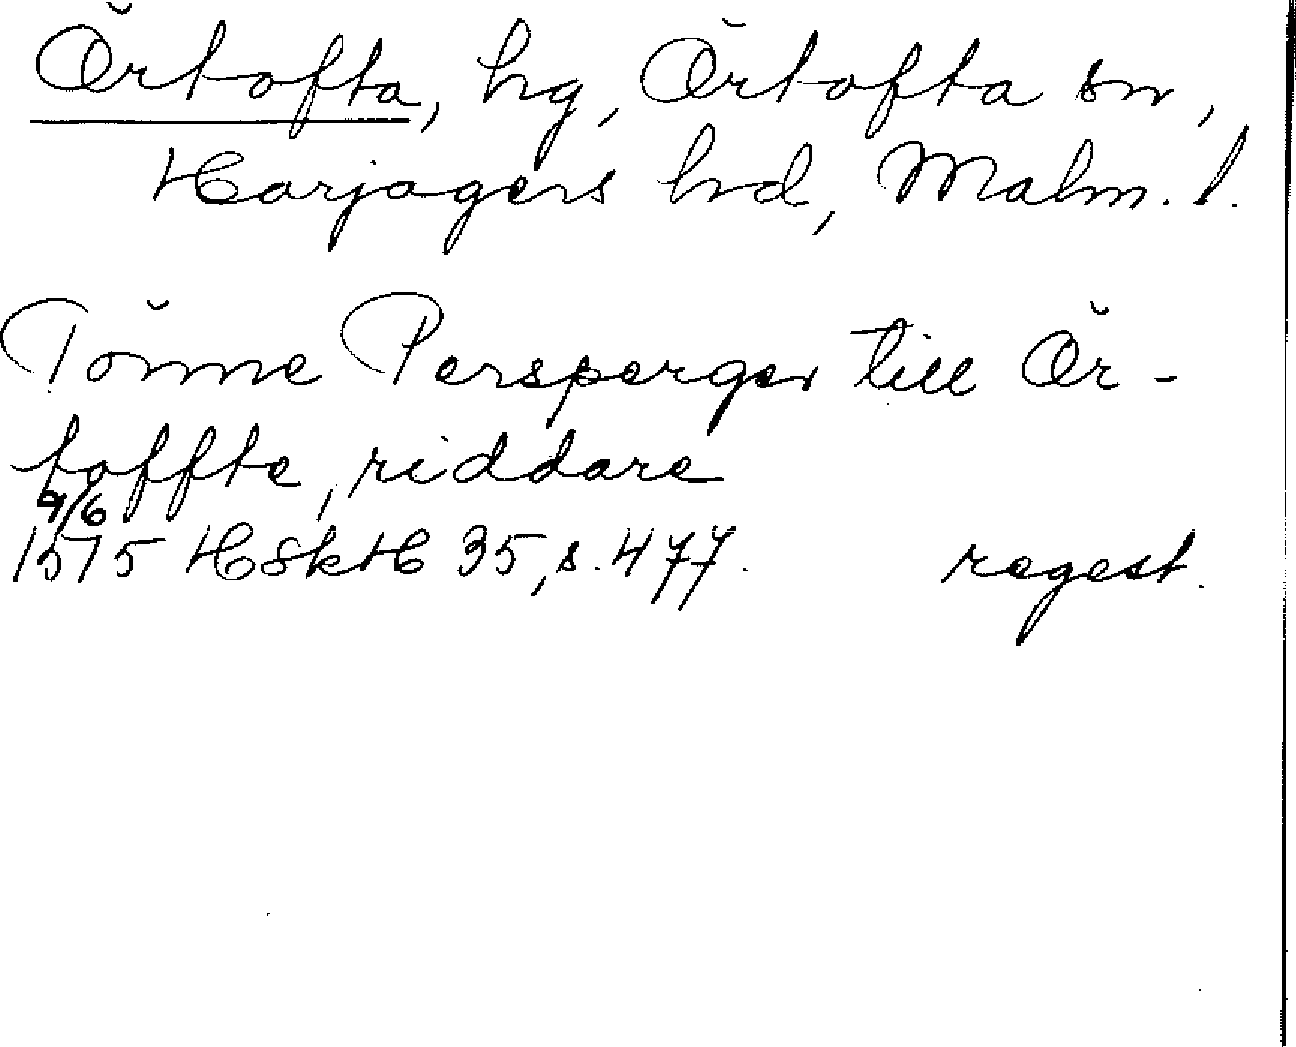 Örtofta, hg, Örtofta sn,
Harjagers hd, Malm. l.
Tönne Persperger till Ör-
toffte, riddare
9/6
1575 HSkH 35, s. 477.    regest.